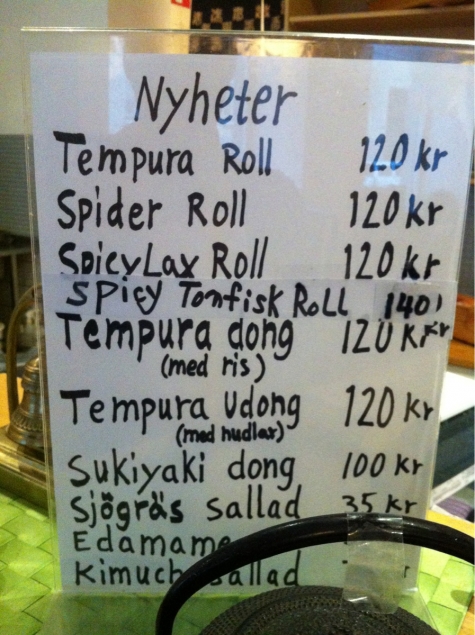 Nyheter
Tempura Roll 120 kr
Spider Roll 120 kr
SpicyLax Roll 120 kr
Spicy Tonfisk Roll 140
Tempura dong 120 kr kr
(med ris)
Tempura Udong 120 kr
(med hudlar)
Sukiyaki dong 100 kr
Sjögräs sallad 35 kr
Edamame
Kimuch sallad